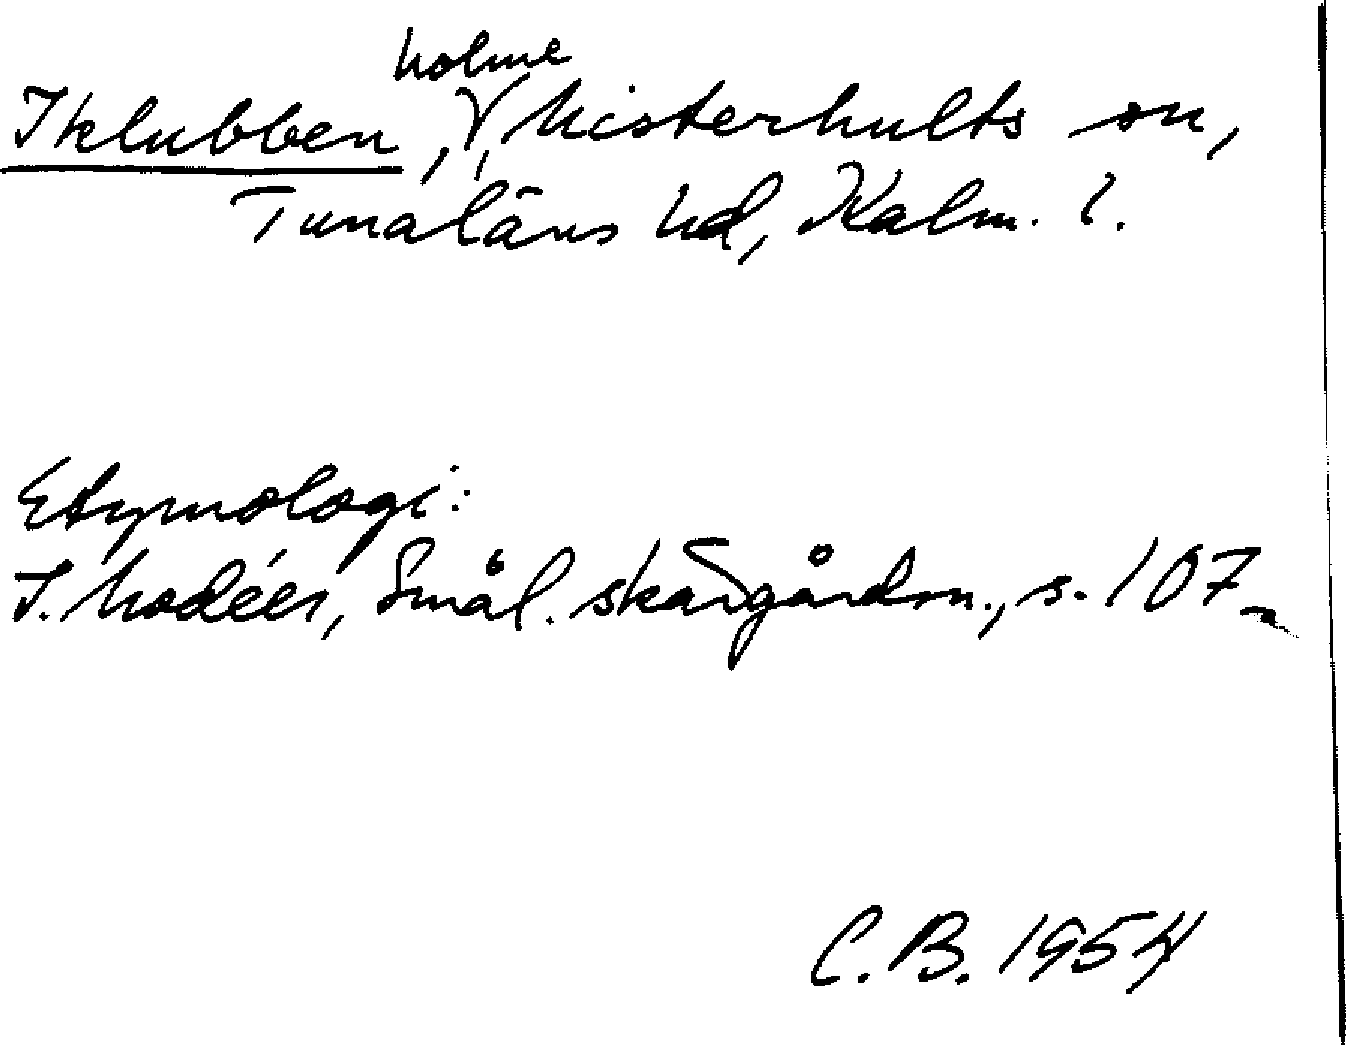 holme
Iklubben, Misterhults sn,
Tunaläns hd, Kalm. l.
Etymologi:
I. Modéer, Smål. skärgårdsn., s. 107
C. B. 1954